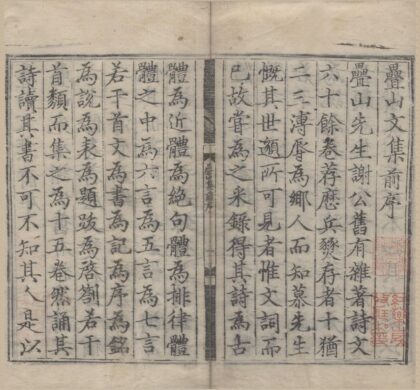 疊山文集前序
疊山先生謝公舊有雜著詩文
六十餘卷荐歷兵燹存者十猶
二三溥辱為鄉人而知慕先生
慨其世邈所可見者惟文詞而
已故嘗為之采錄得其詩為古
體為近體為絕句體為排律體
體之中為六言為五言為七言
若干首文為書為記為序為銘
為說為表為題跋為啓劄若干
首類而集之為十五卷然誦其
詩讀其書不可不知其人是以